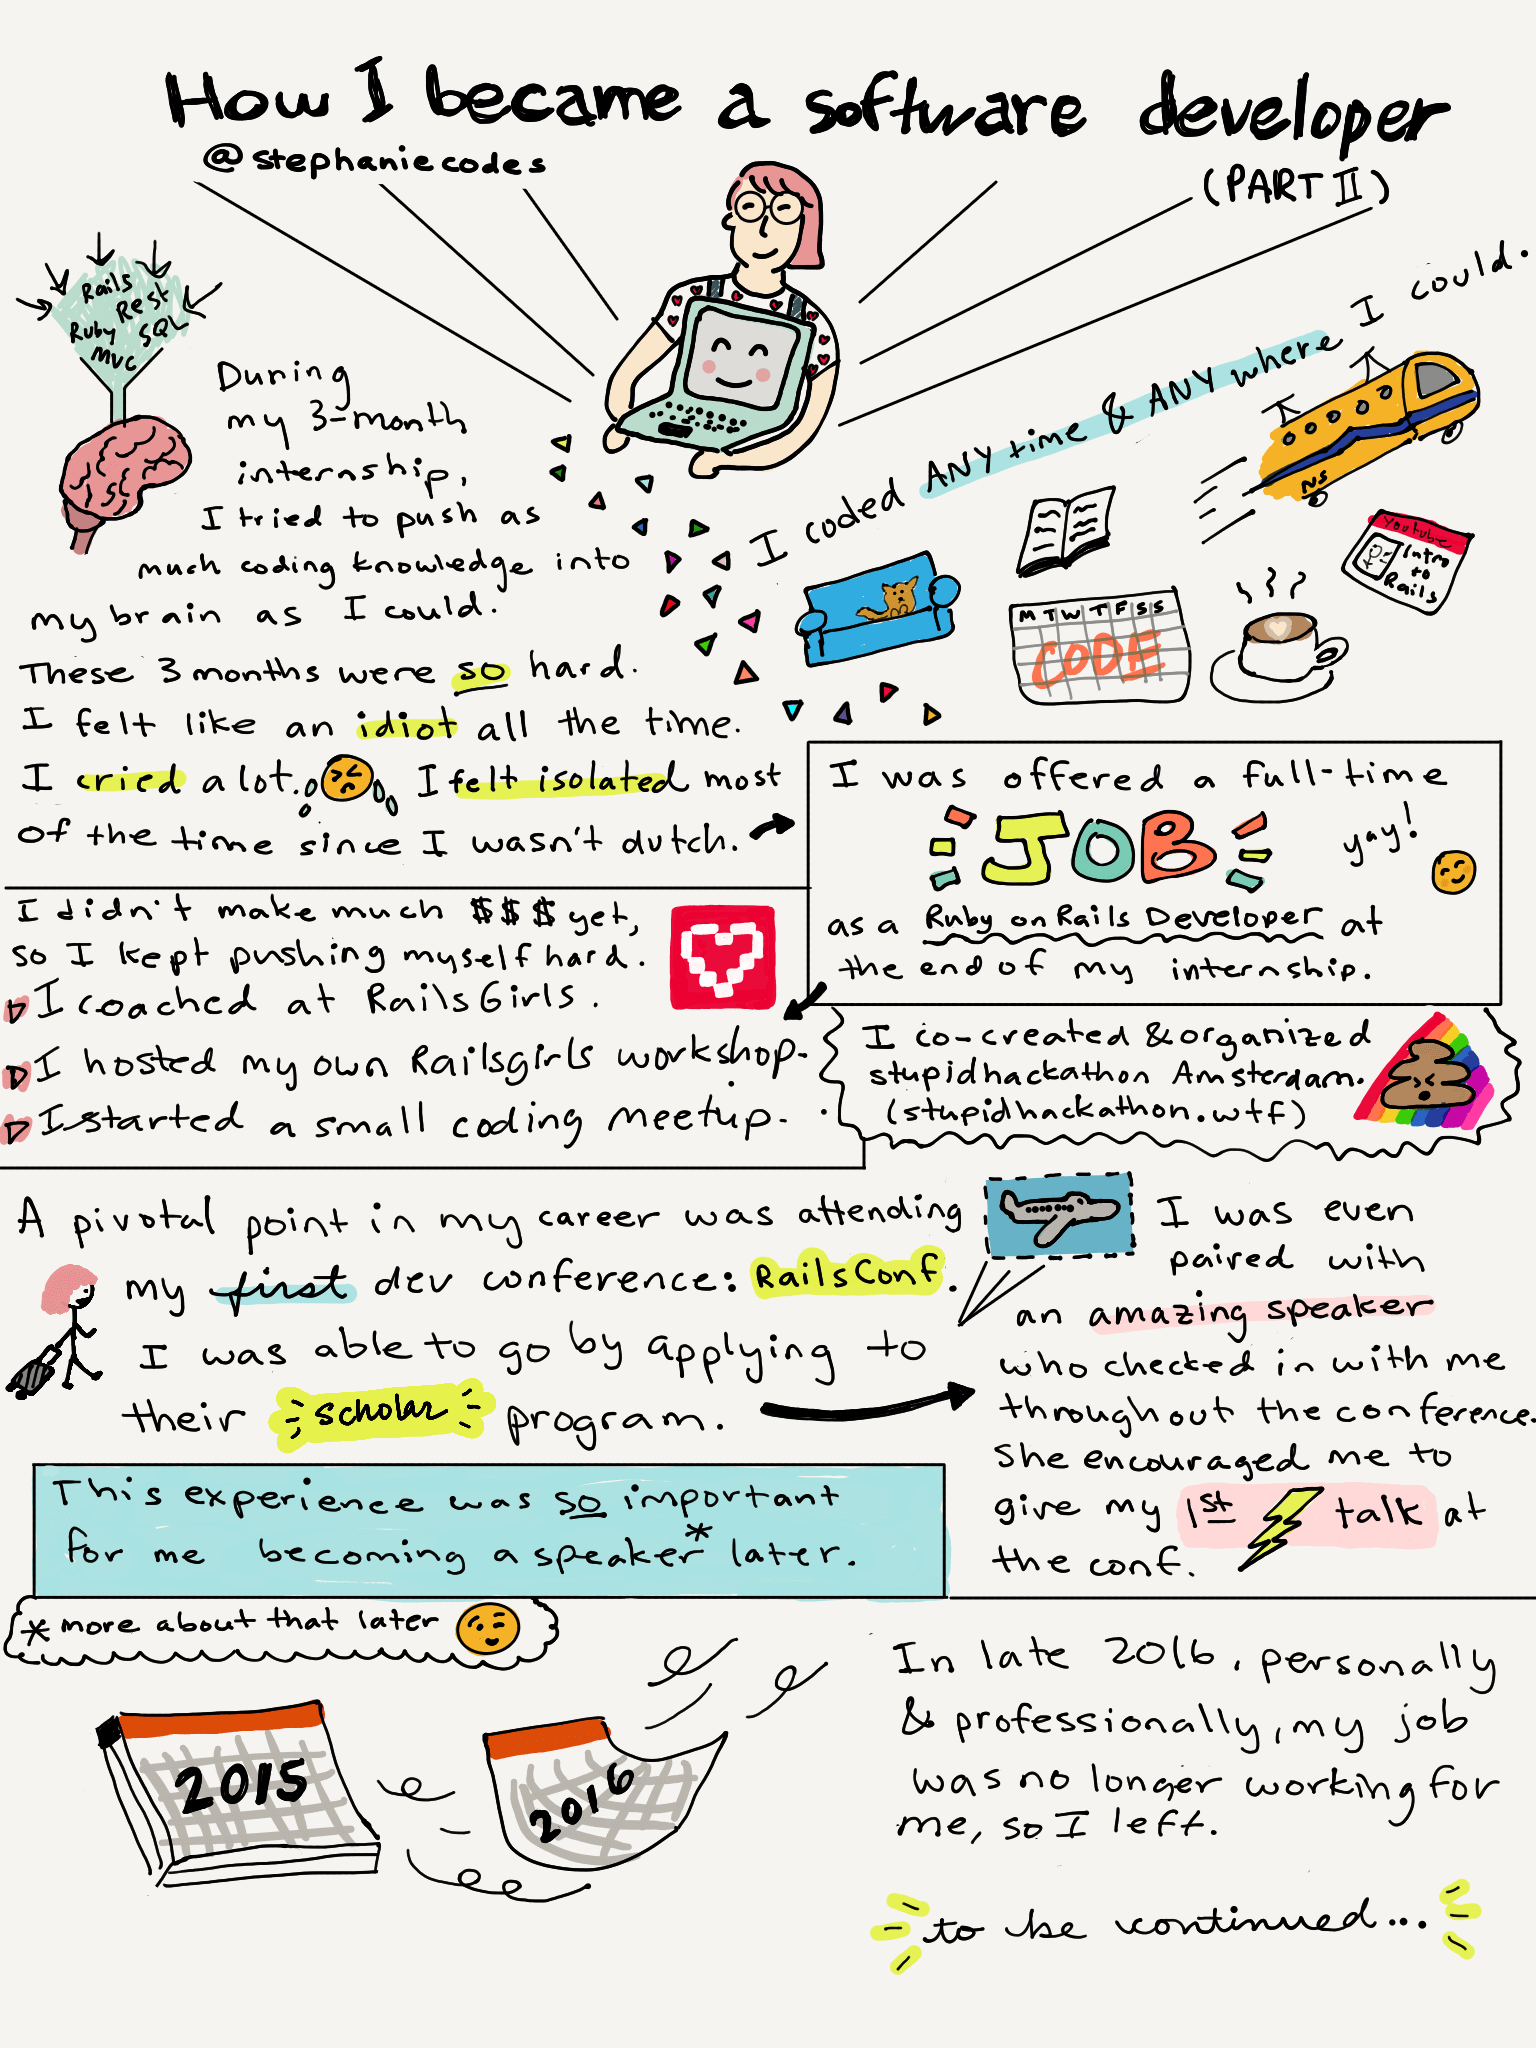 How I became a software developer
@stephaniecodes
(PART II)
Rails
REST
Ruby SQL
MVC
During
my 3-month
internship,
I tried to push as
much coding knowledge into
my brain as I could.
I coded ANY time & ANY where I could.
NS
Youtube
Intro
to
Rails
M T W T F S S
CODE
These 3 months were so hard.
I felt like an idiot all the time.
I cried a lot. I felt isolated most
of the time since I wasn't dutch.
I was offered a full-time
JOB
yay!
as a Ruby on Rails Developer at
the end of my internship.
I didn't make much $$$ yet,
so I kept pushing myself hard.
I coached at RailsGirls.
I hosted my own Railsgirls workshop.
I started a small coding meetup.
I co-created & organized
stupidhackathon Amsterdam.
(stupidhackathon.wtf)
A pivotal point in my career was attending
my first dev conference: RailsConf.
I was able to go by applying to
their scholar program.
I was even
paired with
an amazing speaker
who checked in with me
throughout the conference.
She encouraged me to
give my 1st talk at
the conf.
This experience was so important
for me becoming a speaker* later.
* more about that later
2015
2016
In late 2016, personally
& professionally, my job
was no longer working for
me, so I left.
to be continued...